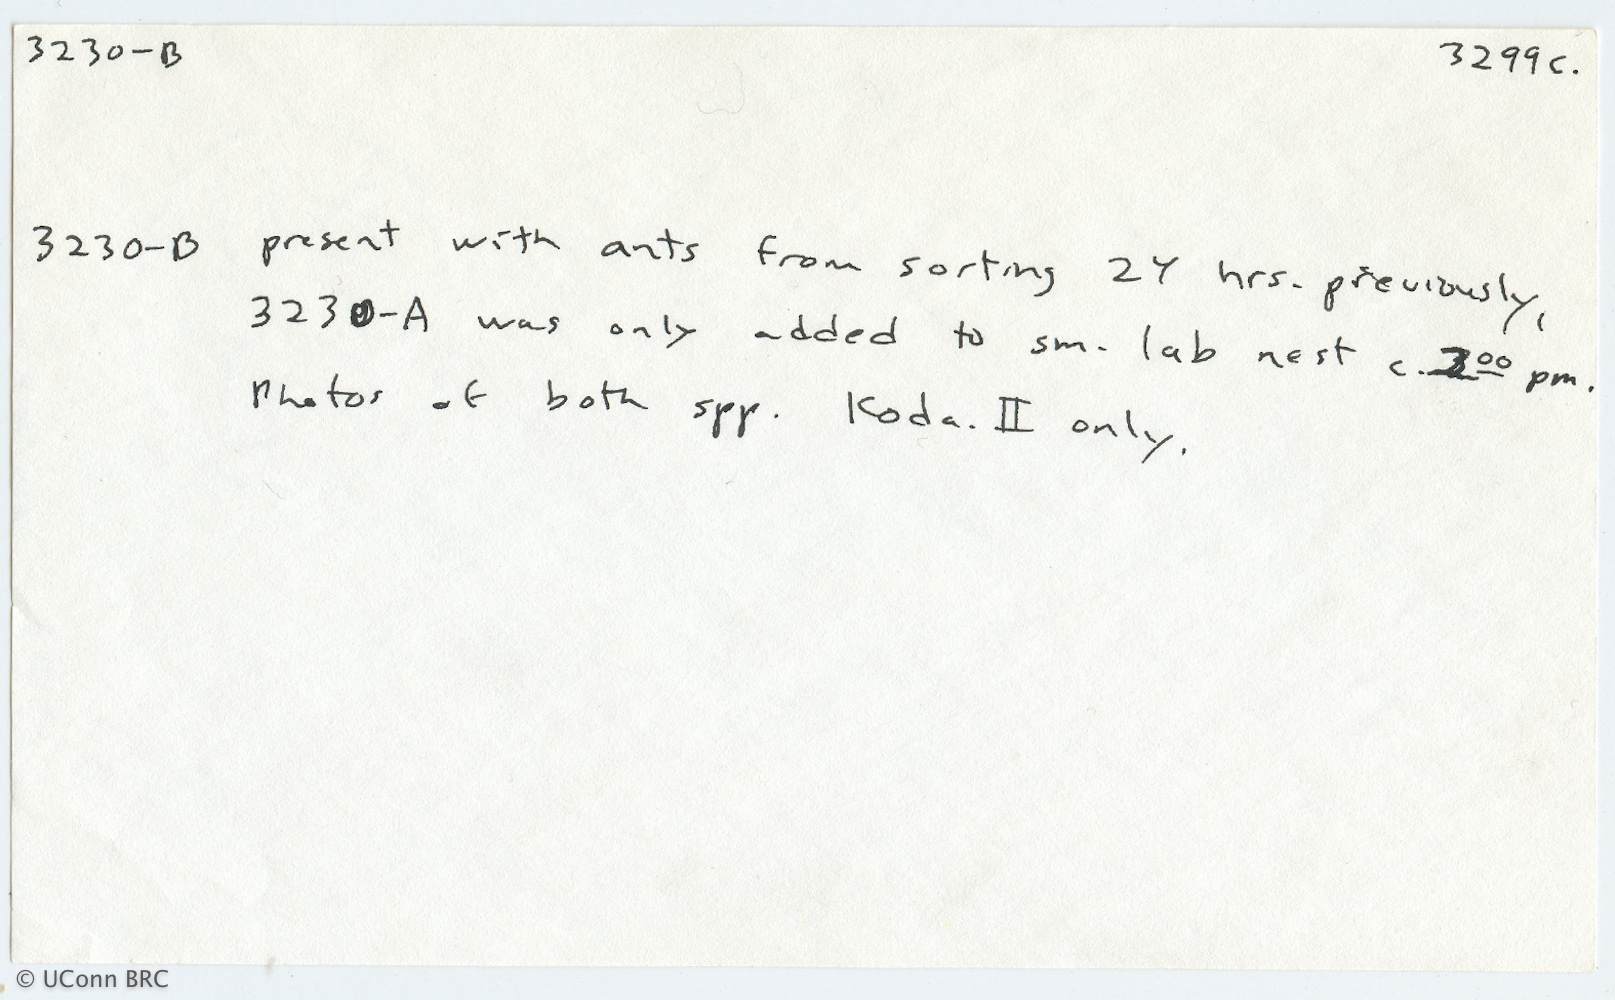 3230-B 3299c.
3230-B present with ants from sorting 24 hrs. previously,
3230-A was only added to sm. lab nest c. 00 pm.
Photos of both spp. Koda. II only.
© UConn BRC